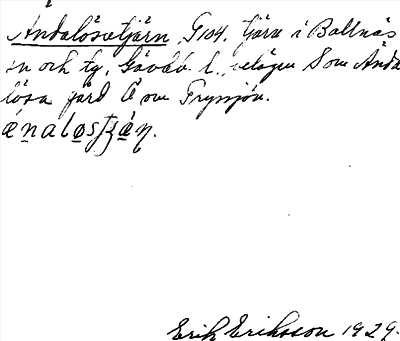 Åndalösetjärn, G104. Tjärn i Bollnäs
sn och tg, Gävleb. l., belägen S om Ånda
lösa gård Ö om Frynsjön.
ǻnaløstʃæ̀ɳ.
Erik Eriksson 1929.